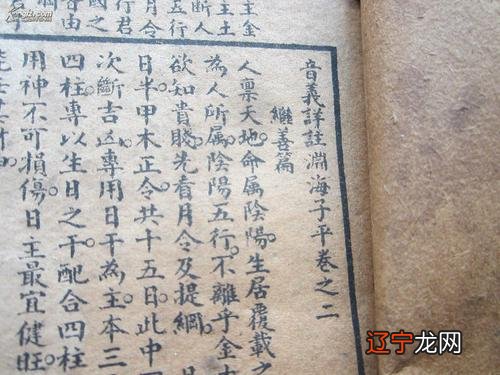 主金
人主土
五行
月令
行君
國之
由
音義詳註淵海子平卷之二
繼善篇
人稟天地命属陰陽。生居覆載之
為人所属陰陽五行。不離乎金
欲知貴賤。先看月令及提綱。
日半甲木正令共十五日。此中
次斷吉凶。專用日干為主本三
四柱專以生日之干配合四柱
用神不可損傷日主最宜健旺
辽宁龙网